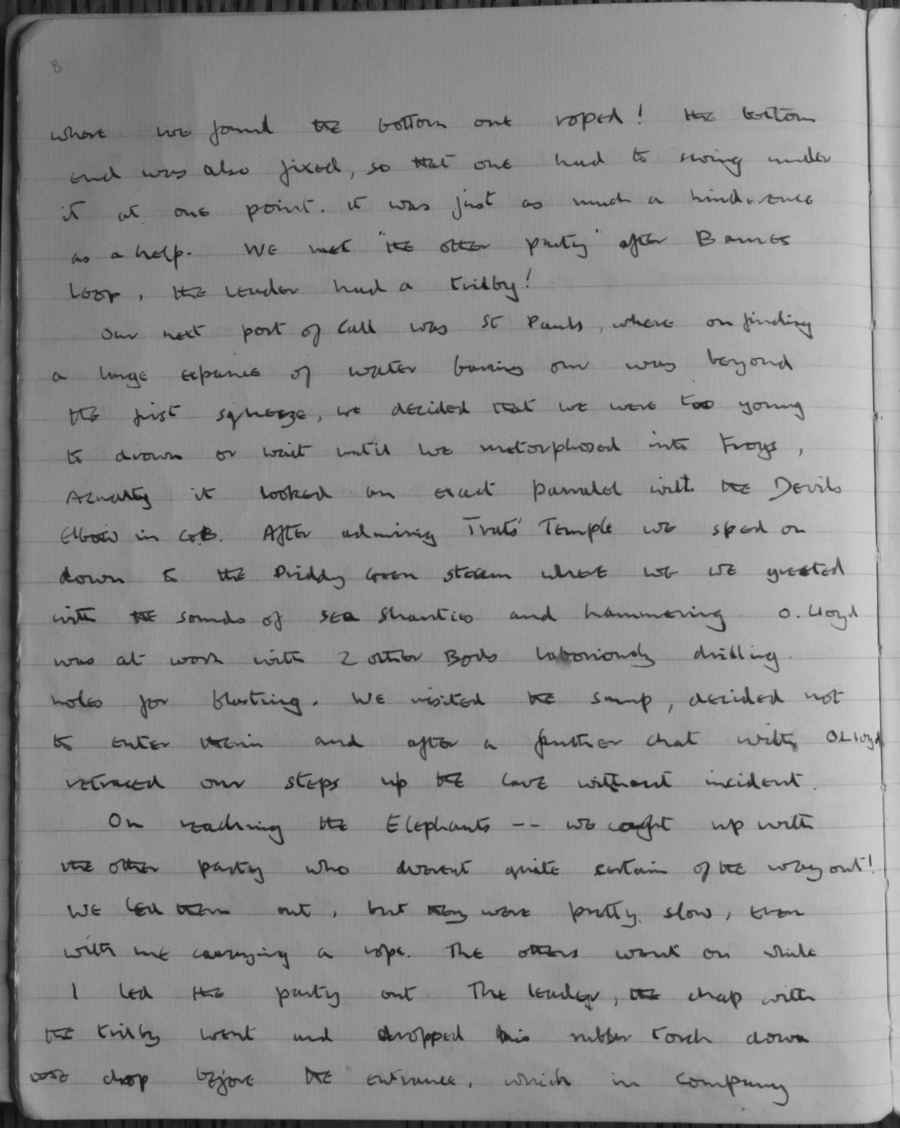 8
where we found the bottom one roped! The bottom
end was also fixed, so that one had to swing under
it at one point. It was just as much a hinderence
as a help. We met "the other party" after Barnes
Loop, the leader had a trilby!
Our next port of call was St Pauls, where on finding
a large expance of water baring our way beyond
the first squeeze, we decided that we were too young
to drown or wait until we metorphosed into Frogs,
Actually it looked an exact parralel with the Devils
Elbow in G.B. After admiring Trats Temple we sped on
down to the Priddy Green steam where we we greeted
with the sounds of sea shanties and hammering O. Lloyd
was at work with 2 other Bods laboriously drilling
holes for blasting. We visited the sump, decided not
to enter therin and after a further chat with O Lloyd
retraced our steps up the cave without incident.
On reaching the Elephants -- we caught up with
the other party who weren't quite certain of the way out!
We led them out, but they were pretty slow, even
with me carrying a rope. The others went on while
I led the party out The leader, the chap with
the trilby went and dropped his rubber torch down
drop before the entrance, which in company